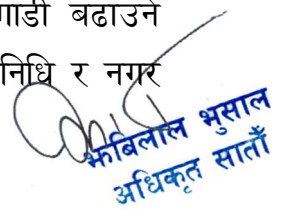 गाडी बढाउने
निधि र नगर
झबिलाल भुसाल
अधिकृत सातौँ